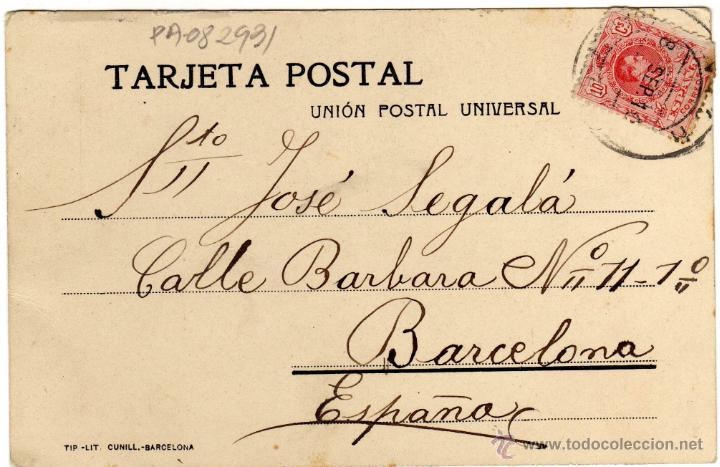 PA082931
TARJETA POSTAL
UNIÓN POSTAL UNIVERSAL
10
SEP
Sto José Segalá
Calle Barbara No 11-1o
Barcelona
España
TIP-LIT. CUNILL.-BARCELONA
www.todocoleccion.net